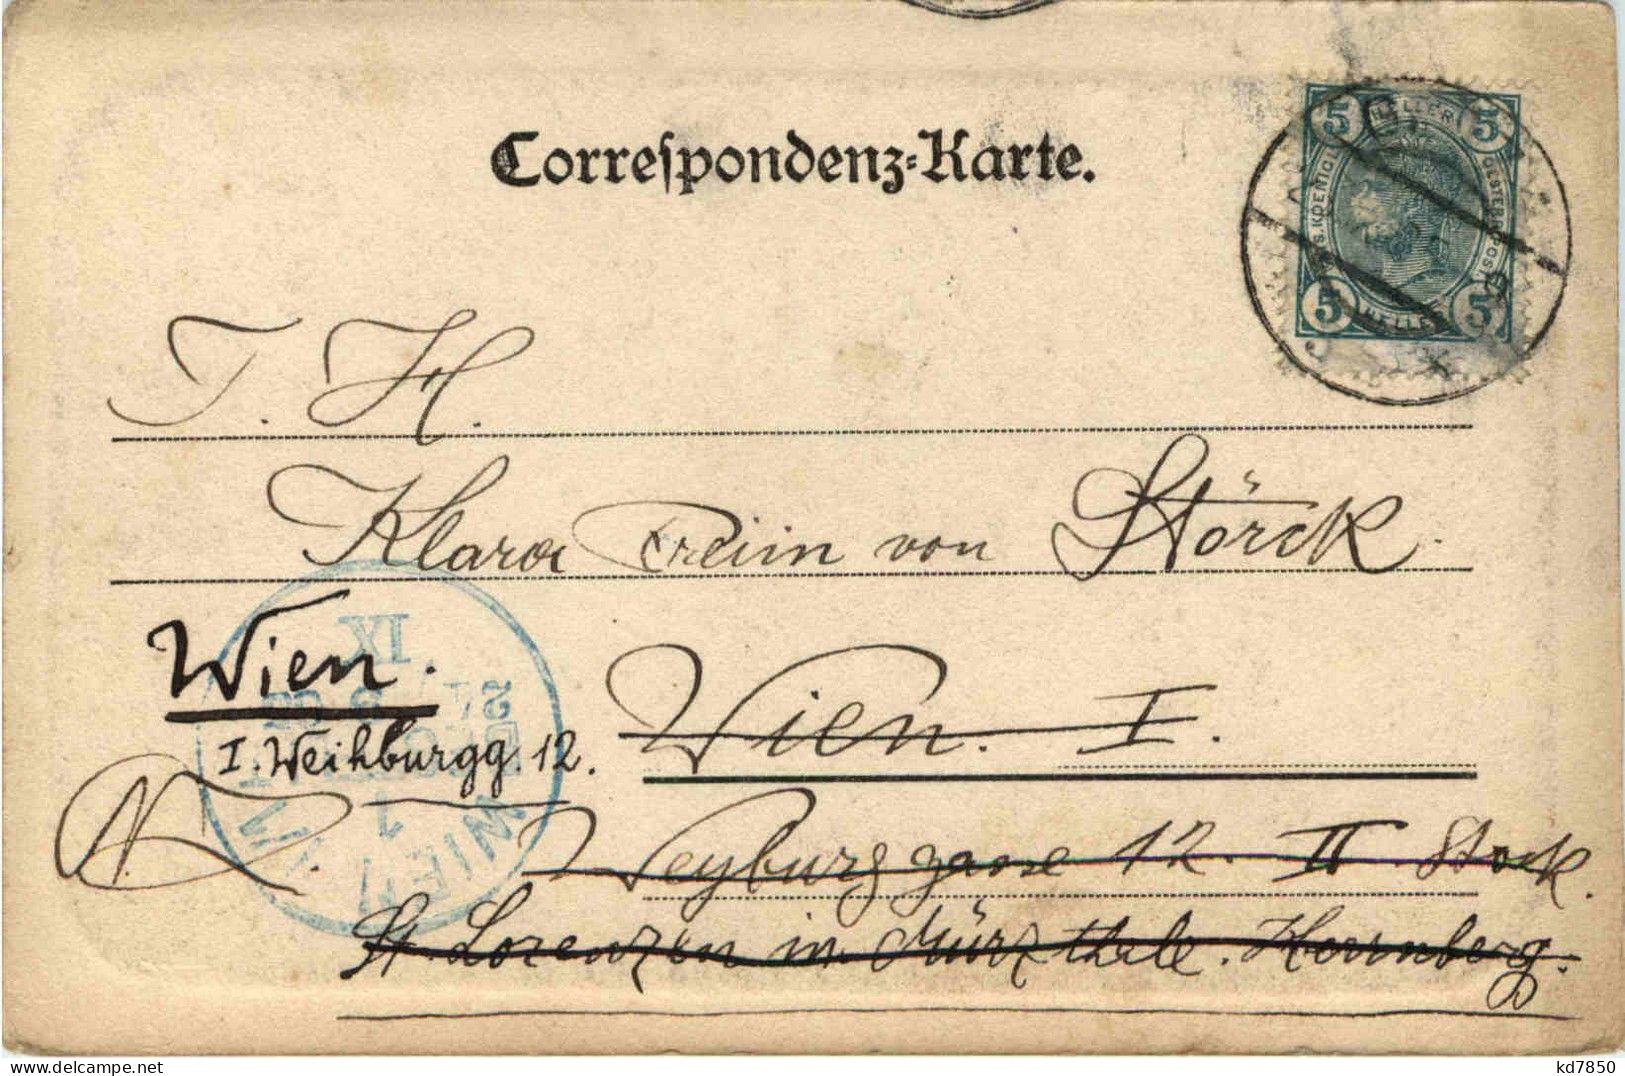 Correspondenz-Karte.
5 HELLER 5
K.K. OESTERR. POST
5 HELLER 5
T. H.
Klara Freiin von Störck.
Wien.
Wien. I.
I. Weihburgg. 12.
Weyburggasse 12. II. Stock.
St. Lorenzen im Mürzthale. Hornberg.
IX
WIEN
1
kd7850